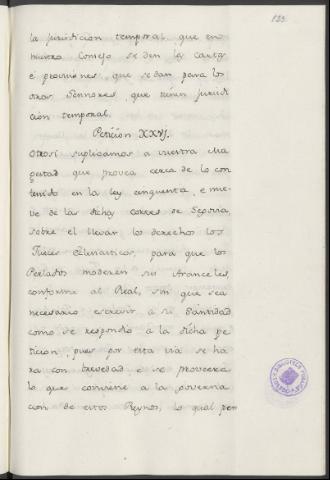 133
la jurisdicion temporal que en
nuestro Consejo se den las cartas
é provisiones que se dan para los
otros Señores, que tienen jurisdi
cion temporal.
Petición XXVJ.
Otrosí suplicamos a vuestra Ma
gestad que provea cerca de lo con
tenido en la ley cinquenta, e nue
ve de las dichas cortes de Segovia,
sobre el llevar los derechos los
Jueces Eclesiasticos, para que los
Perlados moderen sus Aranceles,
conforme al Real, sin que sea
necesario escrivir a su Santidad
como se respondio á la dicha pe
ticion, pues por esta via se ha
ra con brevedad e se proveerá
lo que conviene a la governa
cion de estos Reynos, lo qual per